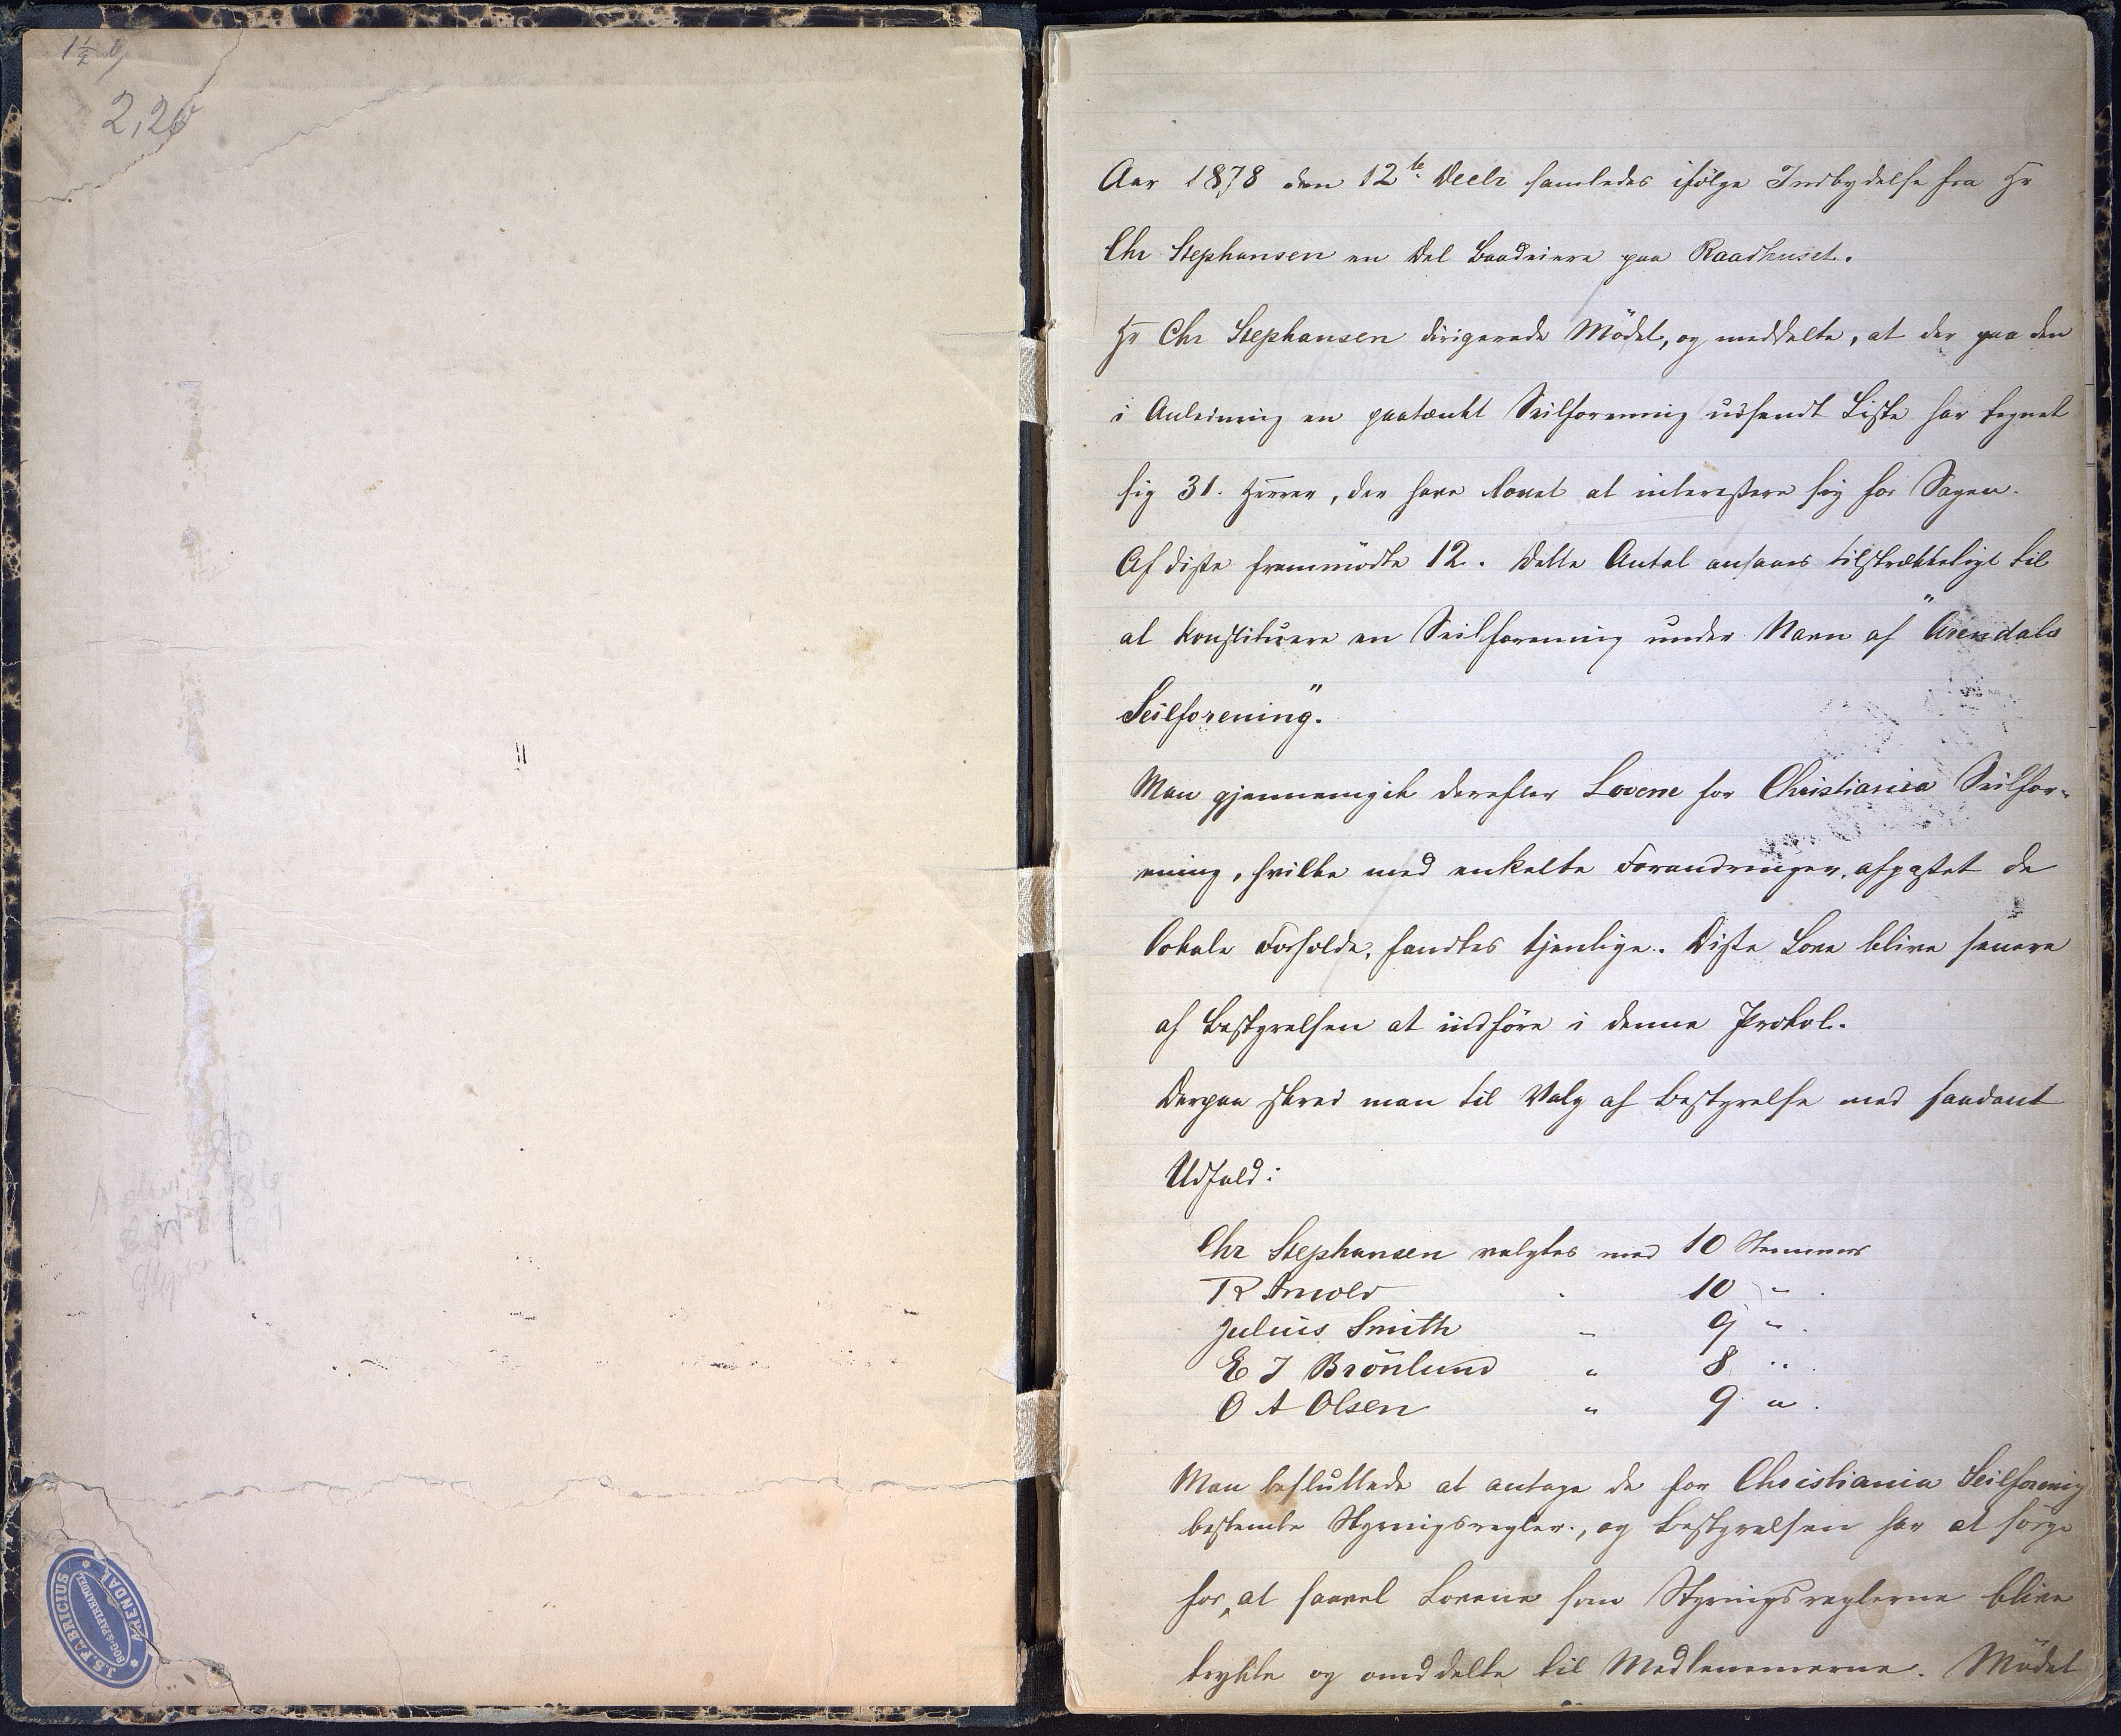 2,20
J. S. FABRICIUS
BOG- & PAPIRHANDEL
ARENDAL
Aar 1878 den 12te Decbr samledes ifølge Indbydelse fra Hr
Chr Stephansen en Del Baadeiere paa Raadhuset.
Hr Chr Stephansen dirigerede Mödet, og meddelte, at der paa den
i Anledning en paatænkt Seilforening udsendt Liste har tegnet
sig 31. Herrer, der have lovet at interessere sig for Sagen.
Af disse fremmödte 12. Dette Antal ansaaes tilstrækkeligt til
at konstituere en Seilforening under Navn af "Arendals
Seilforening".
Man gjennemgik derefter Lovene for Christiania Seilfor-
ening, hvilke med enkelte Forandringer, afpasset de
lokale Forholde, fandtes tjenlige. Disse Love blive senere
af Bestyrelsen at indföre i denne Protokol.
Derpaa skred man til Valg af Bestyrelse med saadant
Udfald:
Chr Stephansen valgtes med 10 Stemmer
R Arnold " 10 "
Julius Smith " 9 "
E J Brönlund " 8 "
O A Olsen " 9 "
Man besluttede at antage de for Christiania Seilforening
bestemte Styringsregler, og Bestyrelsen har at sörge
for, at saavel Lovene som Styringsreglerne blive
trykte og omddelte til Medlemmerne. Mödet